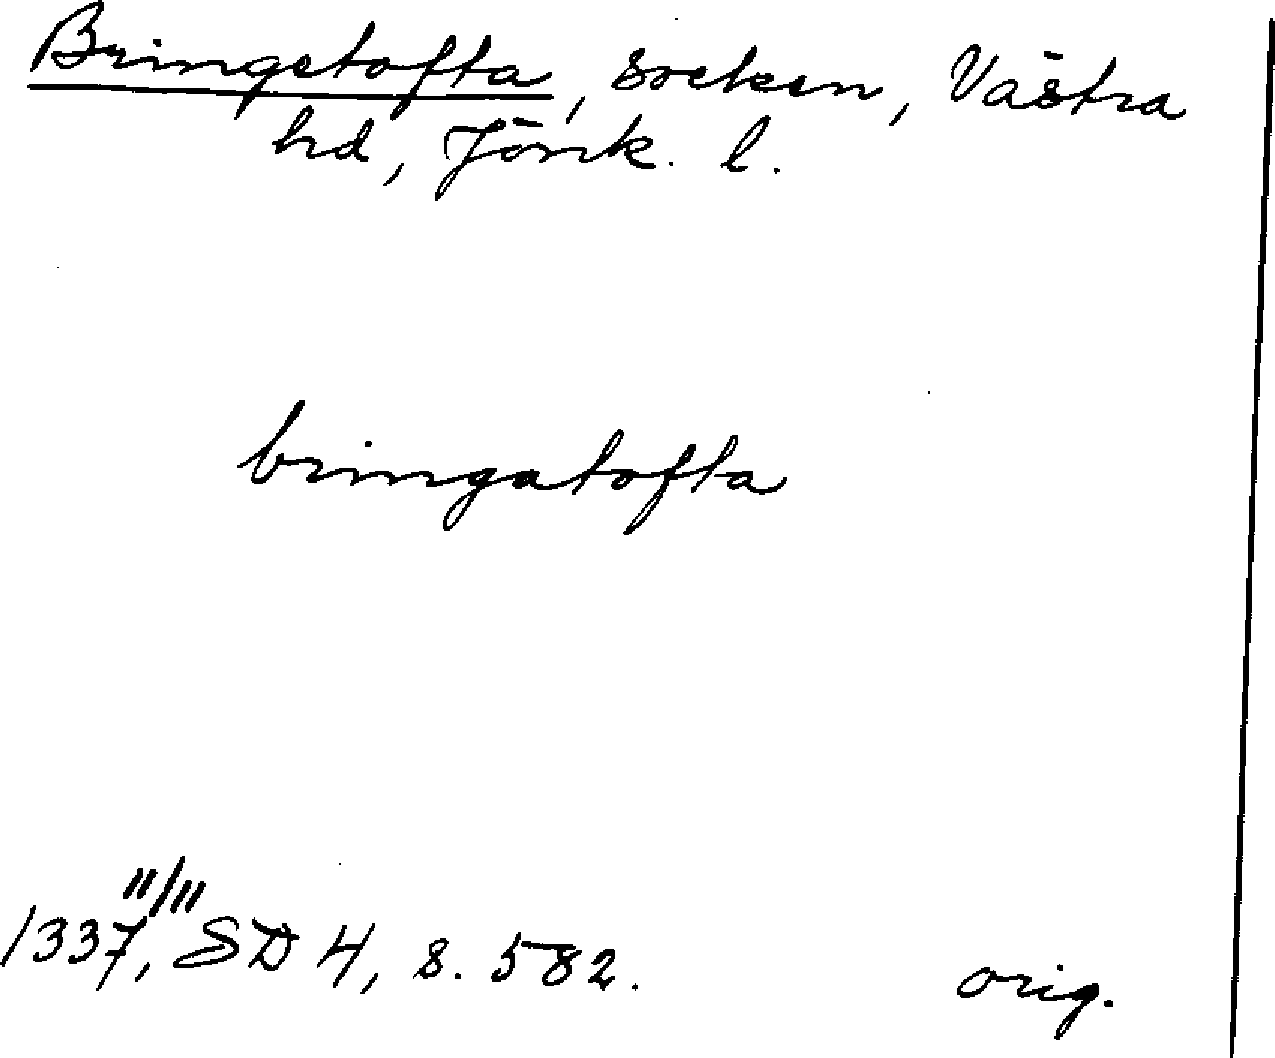 Bringetofta, socken, Västra
hd, Jönk. l.
bringatofta
1337 11/11, SD 4, s. 582.
orig.